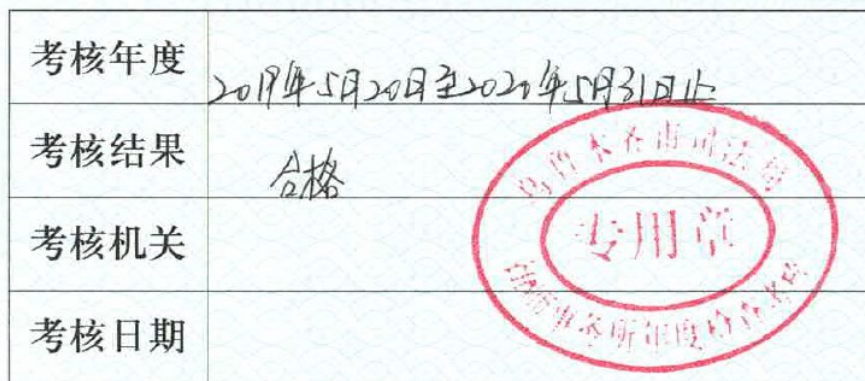 考核年度
2019年5月20日至2020年5月31日止
考核结果
合格
乌鲁木齐市司法局
专用章
律师事务所年度检查考核
考核机关
考核日期